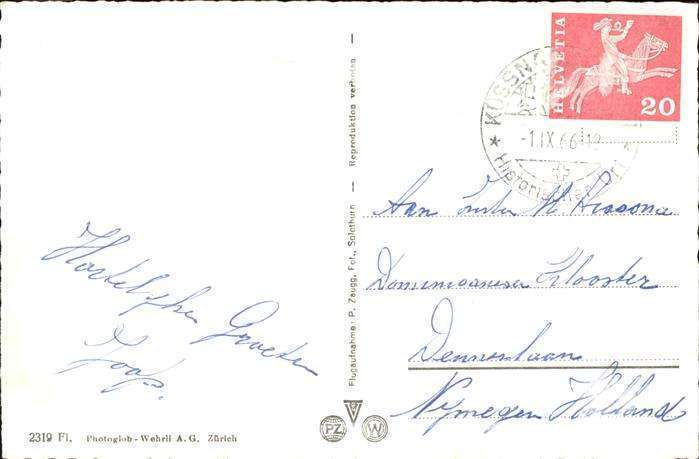 KÜSSNA
-1.IX.66-12
Historisches Ort
HELVETIA
20
Hartelijke Groeten
Joop.
Reproduktion verboten
Flugaufnahme: P. Zaugg, Fot., Solothurn
Aan Zuster M.
Dominicanessen Klooster
Dennenlaan
Nymegen Holland
2319 Fl. Photoglob-Wehrli A. G. Zürich
PZ
W